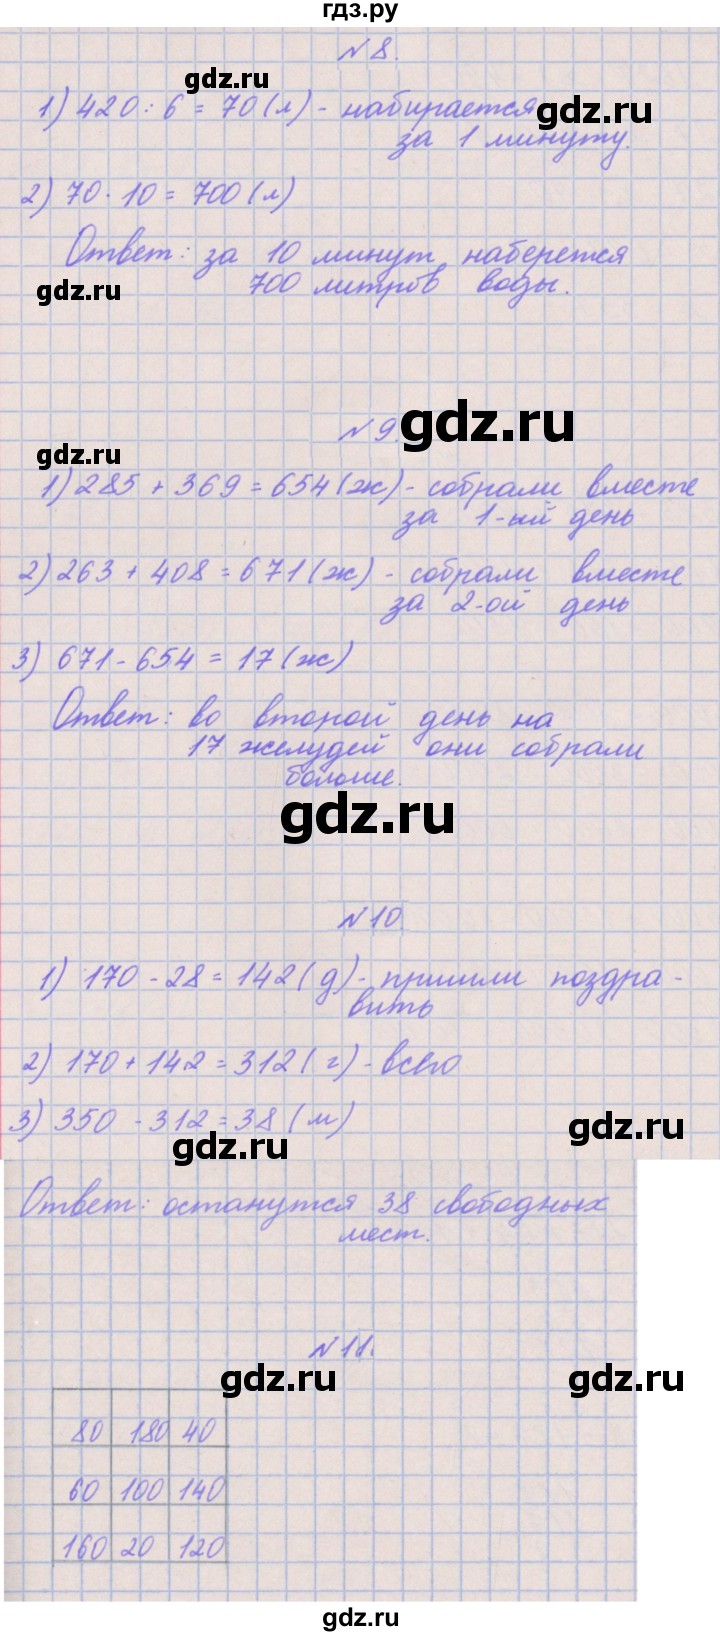 гдз.ру
№8.
gdz.ru
1) 420 : 6 = 70 (л) - набирается
gdz.ru
за 1 минуту.
2) 70 · 10 = 700 (л)
Ответ: за 10 минут наберется
gdz.ru
700 литров воды.
№9.
gdz.ru
gdz.ru
1) 285 + 369 = 654 (ж) - собрали вместе
за 1-ый день
2) 263 + 408 = 671 (ж) - собрали вместе
за 2-ой день
3) 671 - 654 = 17 (ж)
Ответ: во второй день на
17 желудей они собрали
больше.
gdz.ru
№10
1) 170 - 28 = 142 (д) - пришли поздра-
вить
2) 170 + 142 = 312 (г) - всего
3) 350 - 312 = 38 (м)
gdz.ru
gdz.ru
Ответ: останутся 38 свободных
мест.
№11.
gdz.ru
gdz.ru
80 180 40
60 100 140
160 20 120
gdz.ru
gdz.ru